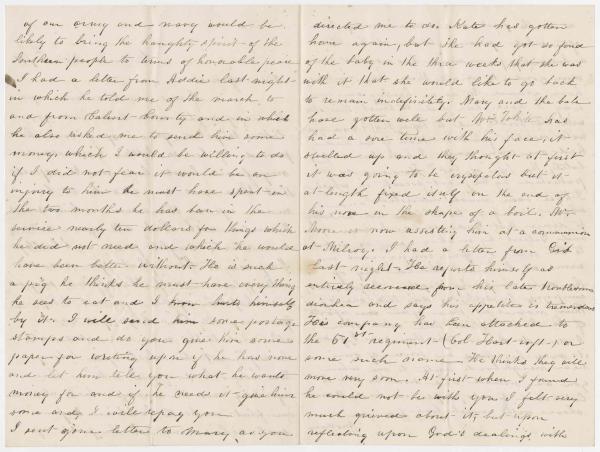 of our army and navy would be
likely to bring the haughty spirit of the
Southern people to terms of honorable peace
I had a letter from Addie last night
in which he told me of the march to
and from Calvert County and in which
he also asked me to send him some
money, which I would be willing to do
if I did not fear it would be an
injury to him he must have spent in
the two months he has been in the
service nearly ten dollars for things which
he did not need and which he would
have been better without. He is such
a pig he thinks he must have everything
he sees to eat and I hurts himself
by it. I will send him some postage
stamps and do you give him some
paper for writing upon if he has none
and let him tell you what he wants
money for and if he needs it give him
some and I will repay you
I sent your letter to Mary as you
directed me to do. Kate has gotten
home again, but she had got so fond
of the baby in the three weeks that she was
with it that she would like to go back
to remain indefinitely. Mary and the babe
have gotten well but Mr has
had a sore time with his face; it
swelled up and they thought at first
it was going to be erysipelas but it
at length fixed itself on the end of
his nose in the shape of a boil. Mr.
Moore is now assisting him at a communion
at Milroy. I had a letter from
last night. He reports himself as
entirely recovered from his late troublesome
diarhea and says his appetite is tremendous
His company has been attached to
the 51st regiment (Col Hartrauft) or
some such name. He thinks they will
move very soon. At first when I found
he would not be with you I felt very
much grieved about it, but upon
reflecting upon God's dealings with